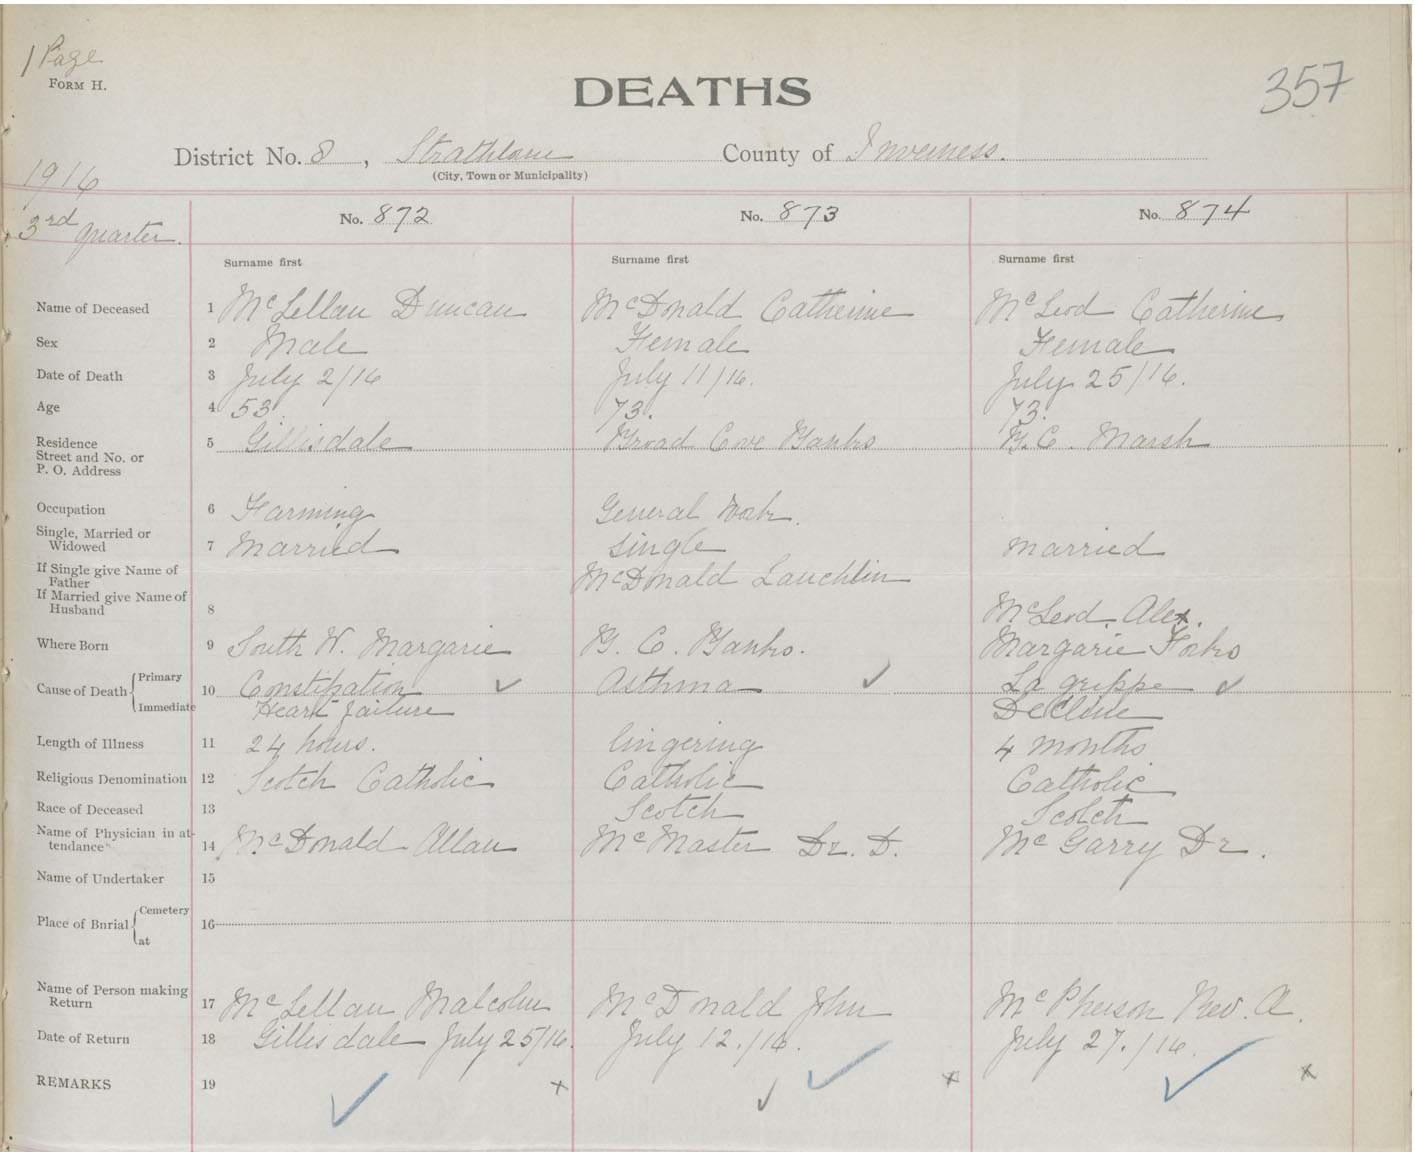 1 Page
FORM H.
DEATHS
357
District No. 8, Strathlorne County of Inverness.
(City, Town or Municipality)
1916
3rd quarter.
No. 872 No. 873 No. 874
Surname first Surname first Surname first
Name of Deceased 1 McLellan Duncan McDonald Catherine McLeod Catherine
Sex 2 Male Female Female
Date of Death 3 July 2/16 July 11/16. July 25/16.
Age 4 53. 73. 73.
Residence
Street and No. or
P. O. Address 5 Gillisdale Broad Cove Banks B. C. Marsh
Occupation 6 Farming General Work.
Single, Married or
Widowed 7 Married Single married
If Single give Name of
Father McDonald Lauchlin
If Married give Name of
Husband 8 McLeod Alex.
Where Born 9 South W. Margarie B. C. Banks. Margarie Forks
Cause of Death Primary 10 Constipation Asthma La grippe
Immediate Heart failure Decline
Length of Illness 11 24 hours. lingering 4 months
Religious Denomination 12 Scotch Catholic Catholic Catholic
Race of Deceased 13 Scotch Scotch
Name of Physician in at-
tendance 14 McDonald Allan McMaster Dr. D. McGarry Dr.
Name of Undertaker 15
Place of Burial Cemetery 16
at
Name of Person making
Return 17 McLellan Malcolm McDonald John McPherson Rev. A.
Date of Return 18 Gillisdale July 25/16. July 12./16. July 27./16.
REMARKS 19 x x x